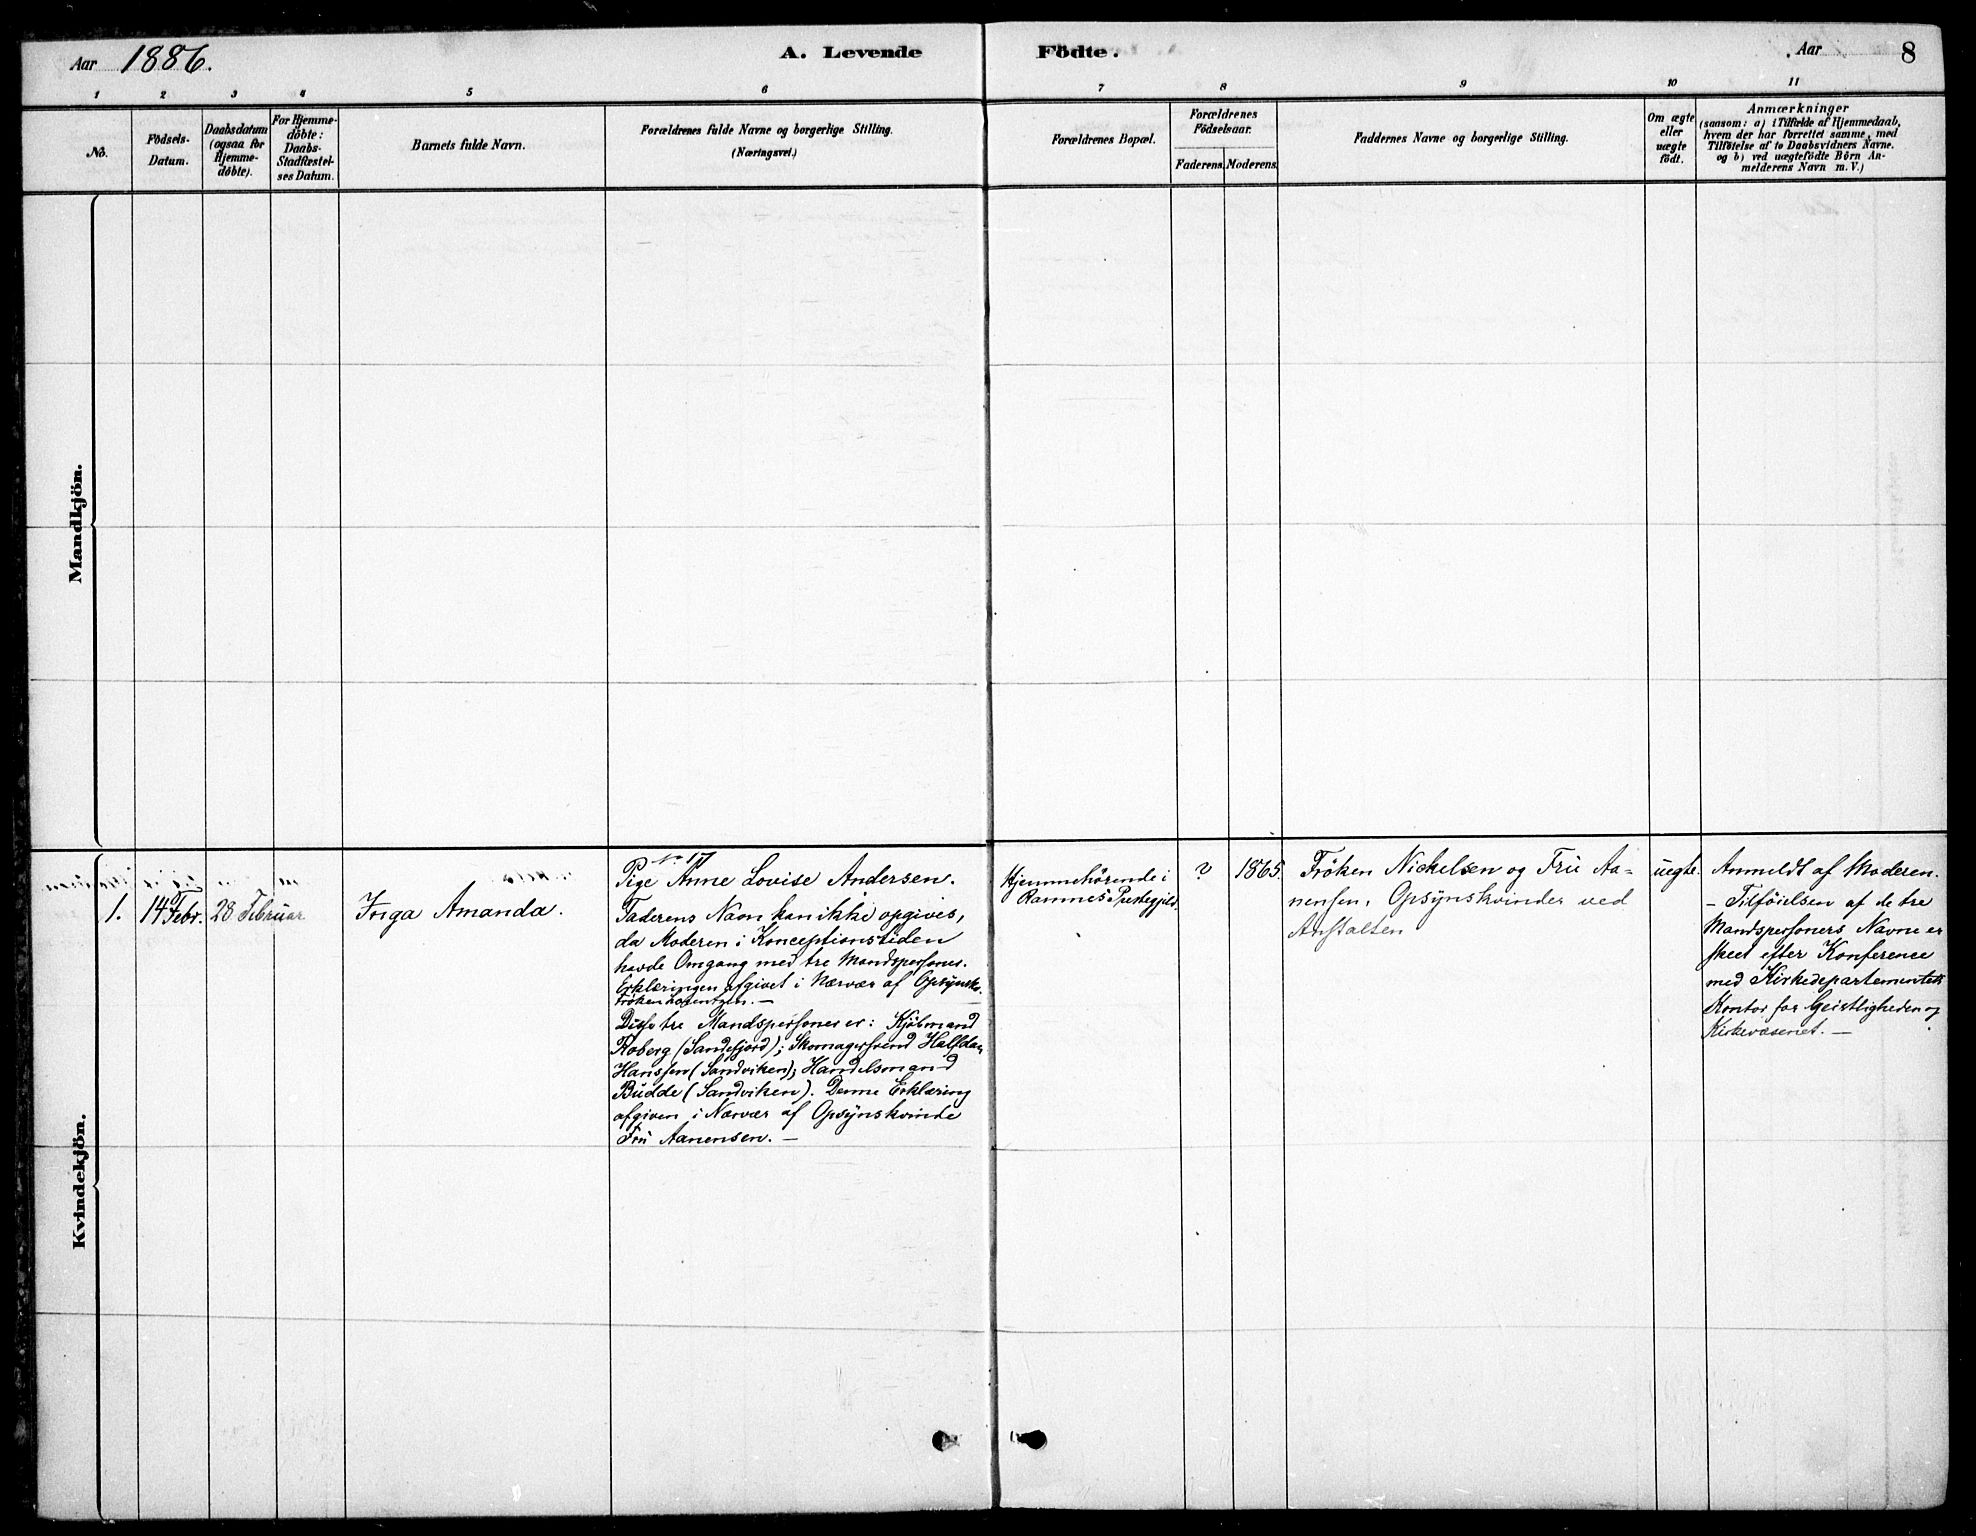 Aar 1886.
A. Levende Födte.
Aar 8
1 2 3 4 5 6 7 8 9 10 11
No.
Födsels-
Datum.
Daabsdatum
(ogsaa for
Hjemme-
döbte).
For Hjemme-
döbte:
Daabs-
Stadfæstel-
ses Datum.
Barnets fulde Navn.
Forældrenes fulde Navne og borgerlige Stilling.
(Næringsvei.)
Forældrenes Bopæl.
Forældrenes
Födselsaar.
Faderens. Moderens.
Faddernes Navne og borgerlige Stilling.
Om ægte
eller
uægte
födt.
Anmærkninger
(saasom: a) i Tilfælde af Hjemmedaab,
hvem der har forrettet samme, med
Tilföielse af to Daabsvidners Navne.
og b) ved uægtefödte Börn An-
melderens Navn m.V.)
Mandkjön.
Kvindekjön.
1.
14 Febr.
28 Februar
Inga Amanda.
No 17
Pige Anne Lovise Andersen.
Faderens Navn kan ikke opgives,
da Moderen i Konceptionstiden
havde Omgang med tre Mandspersoner.
Erklæringen afgivet i Nærvær af Opsynsk.
Frøken
Disse tre Mandspersoner er: Kjøbmand
Roberg (Sandefjord); Skomagersvend Halfdan
Hanssen (Sandviken); Handelsmand
Budde (Sandviken). Denne Erklæring
afgiven i Nærvær af Opsynskvinde
Fru Aanensen. —
Hjemmehörende i
Ramnes Prestegjeld.
?
1865.
Fröken Nickelsen og Fru Aa-
nensen, Opsynskvinder ved
Anstalten
uægte.
Anmeldt af Moderen.
- Tilföielsen af de tre
Mandspersoners Navne er
skeet efter Konference
med Kirkedepartementets
Kontor for Geistligheden og
Kirkevæsenet. —